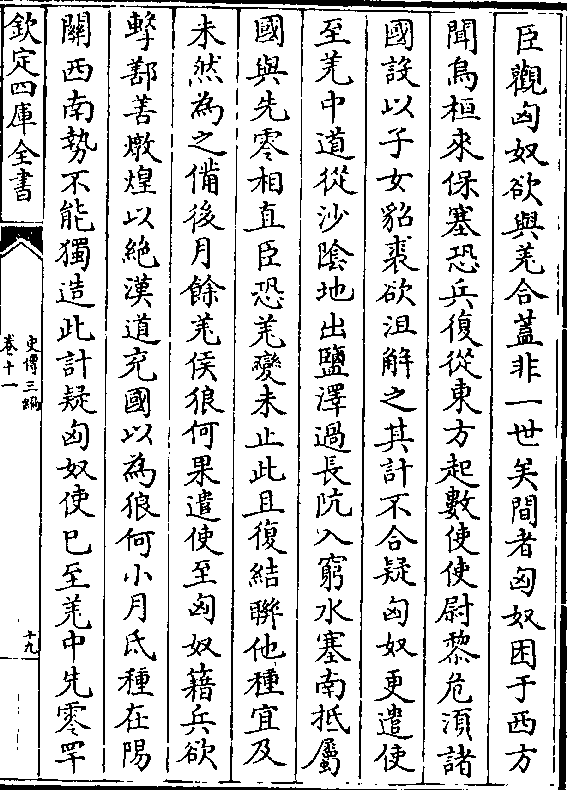 臣觀匈奴欲與羌合蓋非一世矣間者匈奴困于西方
聞烏桓來保塞恐兵復從東方起數使使尉黎危湏諸
國設以子女貂裘欲沮解之其計不合疑匈奴更遣使
至羌中道從沙陰地出鹽澤過長阬入窮水塞南抵屬
國與先零相直臣恐羌變未止此且復結聯他種宜及
未然為之備後月餘羌侯狼何果遣使至匈奴藉兵欲
擊鄯善燉煌以絶漢道充國以為狼何小月氐種在陽
關西南勢不能獨造此計疑匈奴使已至羌中先零罕
欽定四庫全書
史傳三編
卷十一
十九